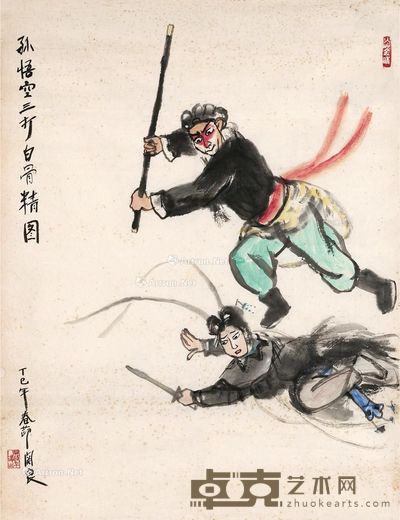 孙悟空三打白骨精图
丁巳年春节
关良
Artron.Net
Artron.Net
Artron.Net
Artron.Net
卓克艺术网
www.zhuokearts.com